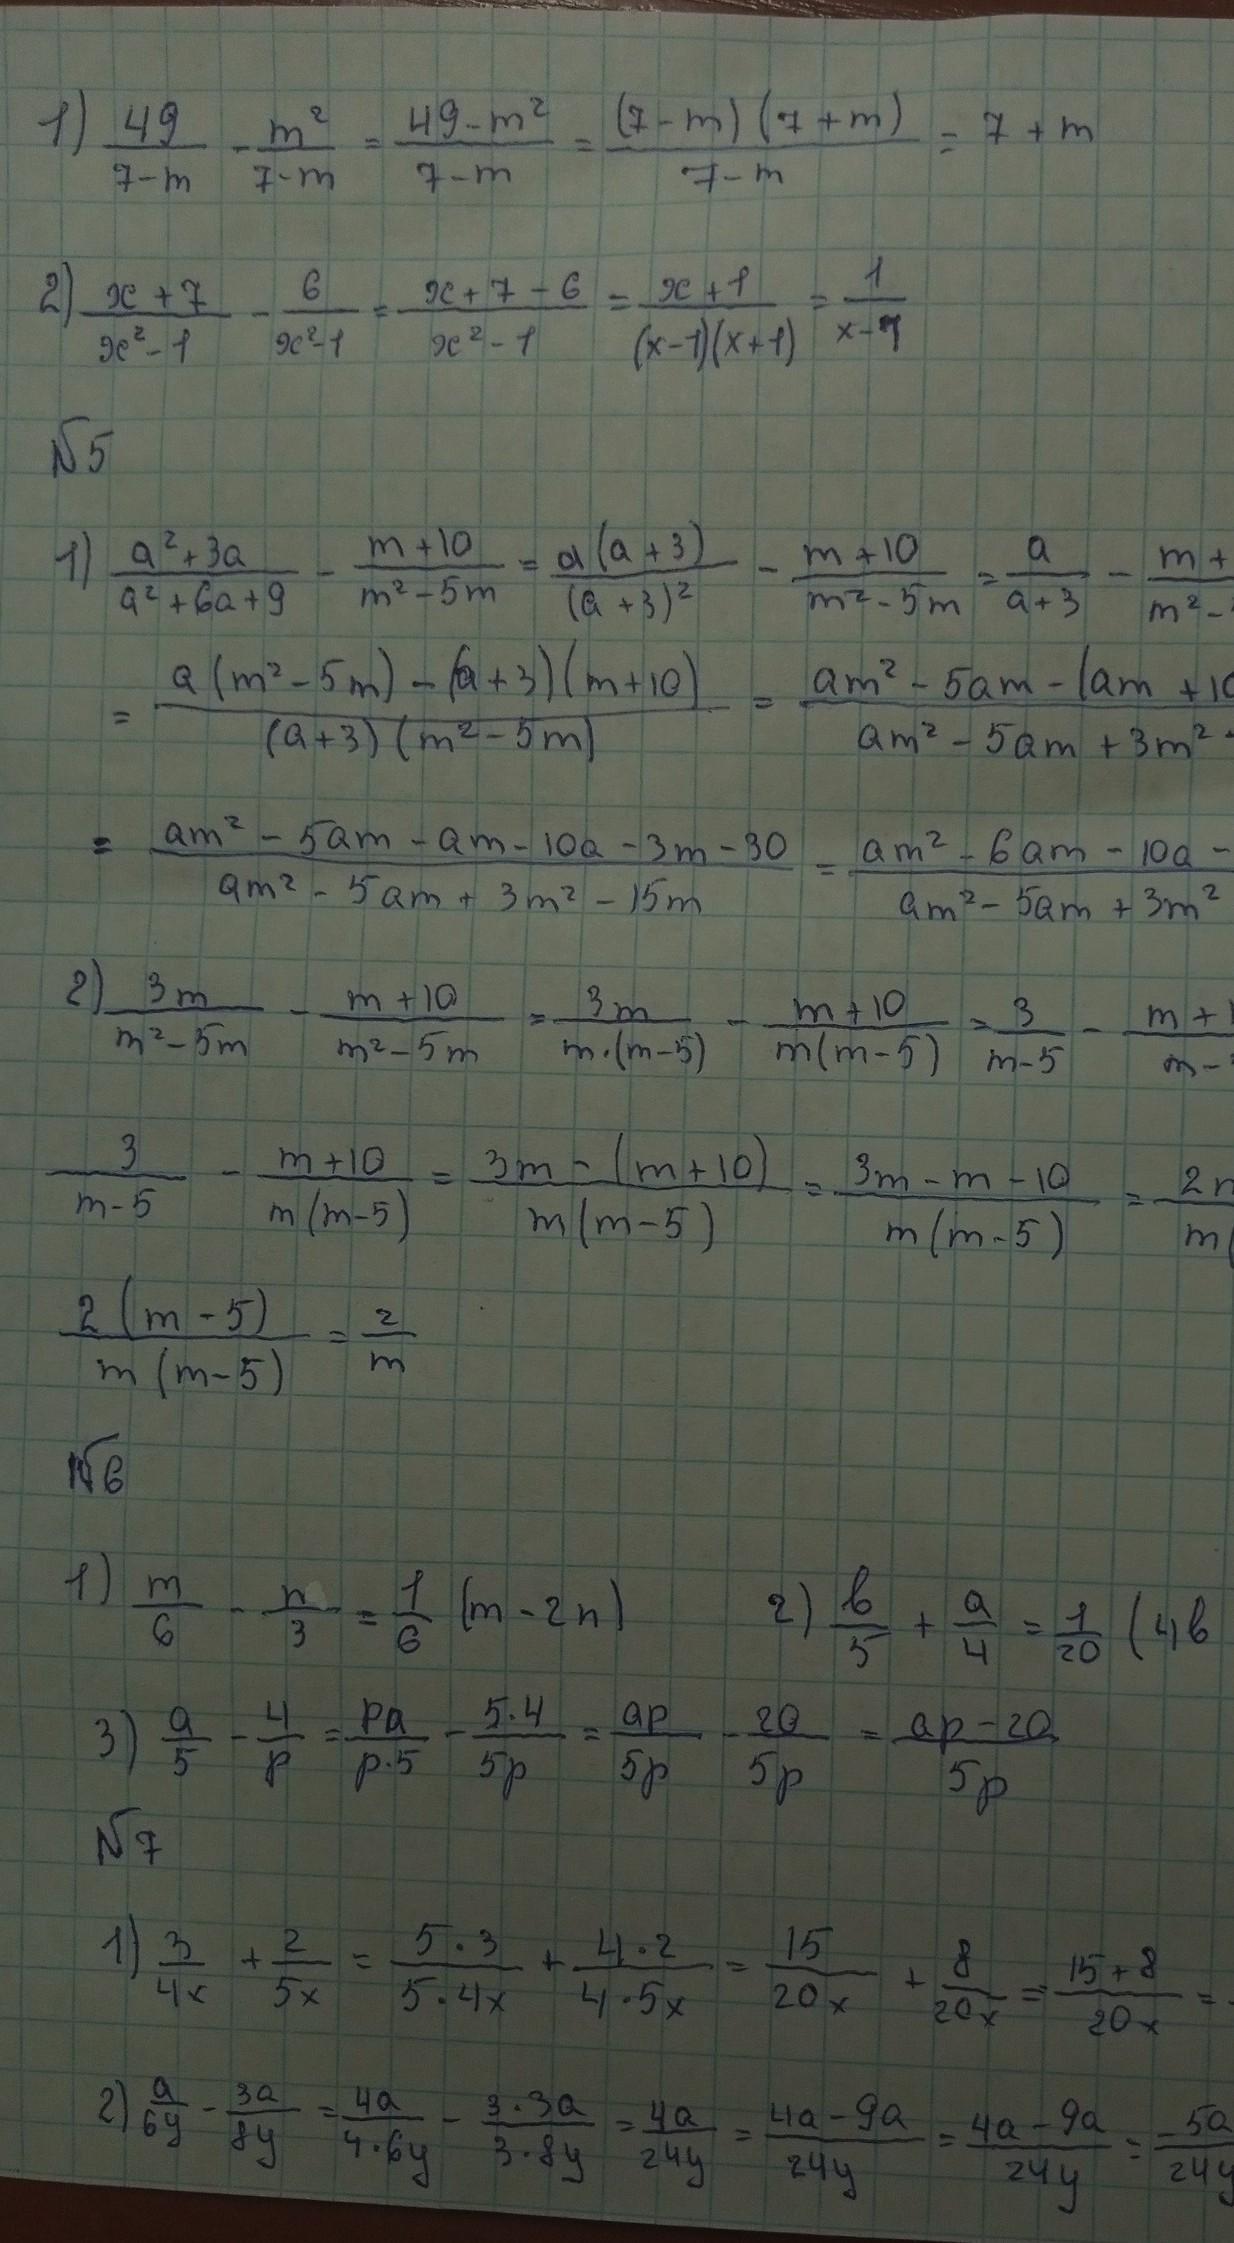 1) 49/(7-m) - m²/(7-m) = (49-m²)/(7-m) = (7-m)(7+m)/(7-m) = 7+m
2) (x+7)/(x²-1) - 6/(x²-1) = (x+7-6)/(x²-1) = (x+1)/((x-1)(x+1)) = 1/(x-1)
№5
1) (a²+3a)/(a²+6a+9) - (m+10)/(m²-5m) = a(a+3)/(a+3)² - (m+10)/(m²-5m) = a/(a+3) - (m+/(m²-
= (a(m²-5m) - (a+3)(m+10))/((a+3)(m²-5m)) = (am²-5am-(am+10/(am²-5am+3m²-
= (am²-5am-am-10a-3m-30)/(am²-5am+3m²-15m) = (am²-6am-10a-/(am²-5am+3m²
2) 3m/(m²-5m) - (m+10)/(m²-5m) = 3m/(m·(m-5)) - (m+10)/(m(m-5)) = 3/(m-5) - (m+1/(m-
3/(m-5) - (m+10)/(m(m-5)) = (3m-(m+10))/(m(m-5)) = (3m-m-10)/(m(m-5)) = 2m/m(
2(m-5)/(m(m-5)) = 2/m
№6
1) m/6 - n/3 = 1/6 (m-2n) 2) b/5 + a/4 = 1/20 (4b
3) a/5 - 4/p = pa/(p·5) - 5·4/5p = ap/5p - 20/5p = (ap-20)/5p
№7
1) 3/4x + 2/5x = 5·3/5·4x + 4·2/4·5x = 15/20x + 8/20x = (15+8)/20x =
2) a/6y - 3a/8y = 4a/4·6y - 3·3a/3·8y = 4a/24y = (4a-9a)/24y = (4a-9a)/24y = -5a/24y